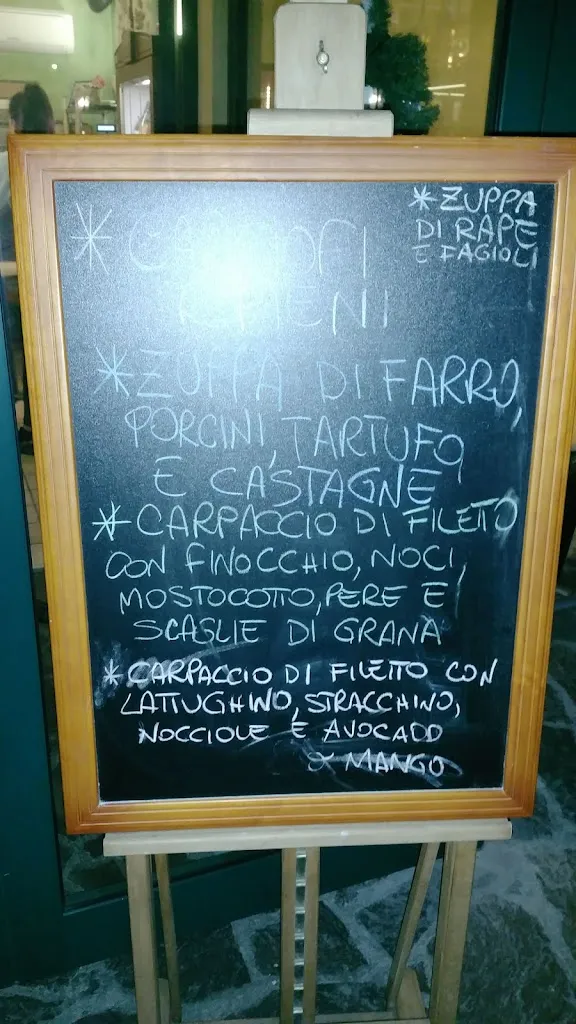 * CARCIOFI
RIPIENI
* ZUPPA
DI RAPE
E FAGIOLI
* ZUPPA DI FARRO,
PORCINI, TARTUFO
E CASTAGNE
* CARPACCIO DI FILETTO
CON FINOCCHIO, NOCI,
MOSTOCOTTO, PERE E
SCAGLIE DI GRANA
* CARPACCIO DI FILETTO CON
LATTUGHINO, STRACCHINO,
NOCCIOLE E AVOCADO
O MANGO